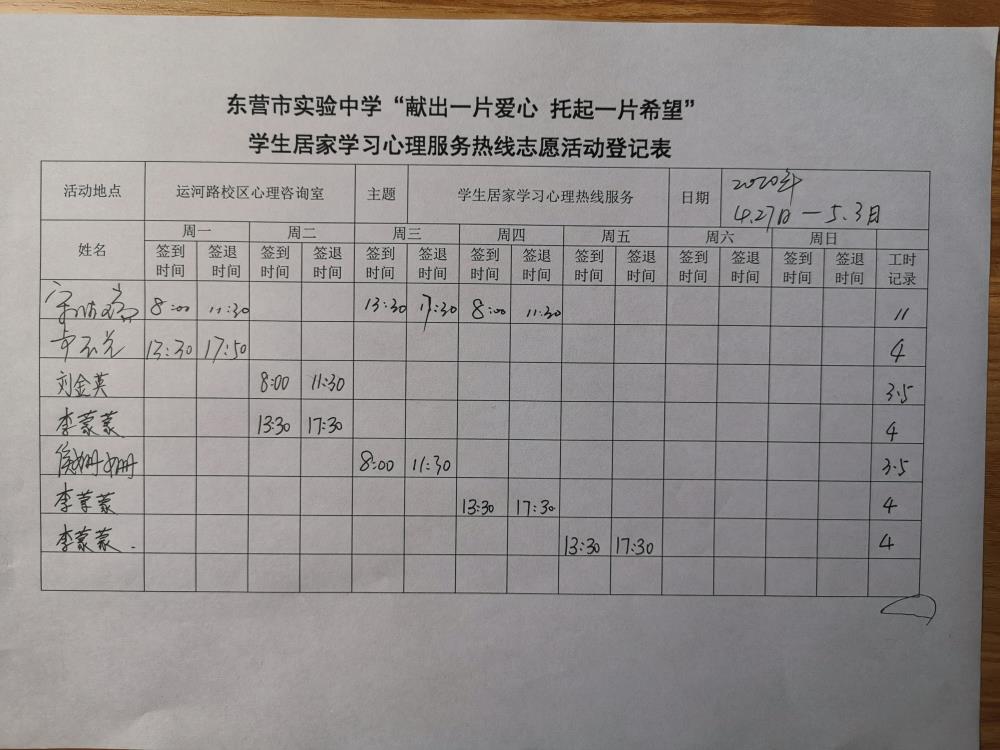 东营市实验中学“献出一片爱心 托起一片希望”
学生居家学习心理服务热线志愿活动登记表
活动地点 运河路校区心理咨询室 主题 学生居家学习心理热线服务 日期 2020年
4.27日—5.3日
姓名 周一 周二 周三 周四 周五 周六 周日
签到 签退 签到 签退 签到 签退 签到 签退 签到 签退 签到 签退 签到 签退 工时
时间 时间 时间 时间 时间 时间 时间 时间 时间 时间 时间 时间 时间 时间 记录
8:00 11:30 13:30 17:30 8:00 11:30 11
13:30 17:50 4
刘金英 8:00 11:30 3.5
李蒙蒙 13:30 17:30 4
侯姗姗 8:00 11:30 3.5
李蒙蒙 13:30 17:30 4
李蒙蒙. 13:30 17:30 4